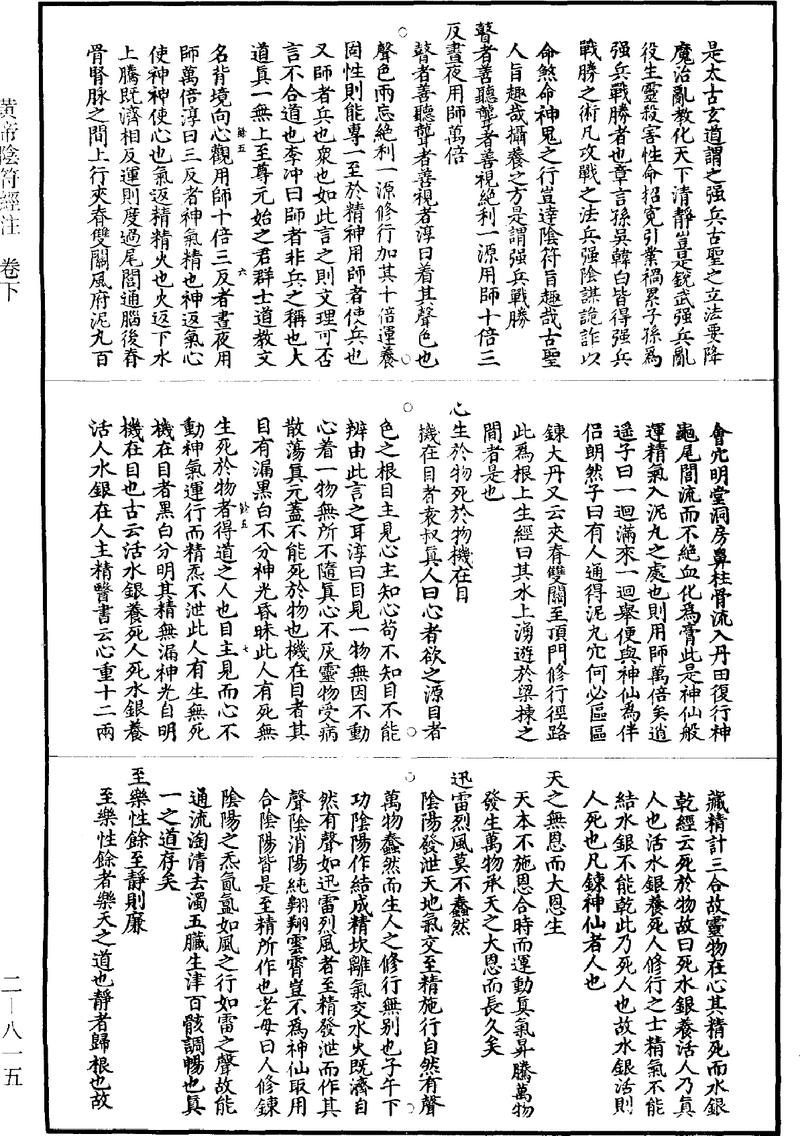 是太古玄道謂之强兵古聖之立法要降
魔治亂教化天下清靜豈是銳武强兵亂
役生靈殺害性命招寃引業禍累子孫爲
强兵戰勝者也章言孫吳韓白皆得强兵
戰勝之術凡攻戰之法兵强陰謀詭詐以
命煞命神鬼之行豈達陰符旨趣哉古聖
人旨趣哉攝養之方是謂强兵戰勝
瞽者善聽聾者善視絕利一源用師十倍三
反晝夜用師萬倍
瞽者善聽聾者善視者淳曰着其聲色也
聲色兩忘絕利一源修行加其十倍運養
固性則能專一至於精神用師者使兵也
又師者兵也衆也如此言之則文理可否
言不合道也李冲曰師者非兵之稱也大
道真一無上至尊元始之君群士道教文
餘五
六
名背境向心觀用師十倍三反者晝夜用
師萬倍淳曰三反者神氣精也神返氣心
使神神使心也氣返精精火也火返下水
上騰既濟相反運則度過尾閭通腦後脊
骨腎脉之間上行夾脊雙關風府泥丸百
會穴明堂洞房鼻柱骨流入丹田復行神
龜尾閭流而不絕血化爲膏此是神仙般
運精氣入泥丸之處也則用師萬倍矣逍
遥子曰一迴滿來一迴舉便與神仙爲伴
侣朗然子曰有人通得泥丸穴何必區區
鍊大丹又云夾脊雙關至頂門修行徑路
此爲根上生經曰其水上湧遊於梁棟之
間者是也
心生於物死於物機在目
機在目者袁叔真人曰心者欲之源目者
色之根目主見心主知心苟不知目不能
辨由此言之耳淳曰目見一物無因不動
心着一物無所不隨真心不灰靈物受病
散蕩真元蓋不能死於物也機在目者其
目有漏黑白不分神光昏昧此人有死無
餘五
七
生死於物者得道之人也目主見而心不
動神氣運行而精炁不泄此人有生無死
機在目者黑白分明其精無漏神光自明
機在目也古云活水銀養死人死水銀養
活人水銀在人主精醫書云心重十二兩
藏精計三合故靈物在心其精死而水銀
乾經云死於物故曰死水銀養活人乃真
人也活水銀養死人修行之士精氣不能
結水銀不能乾此乃死人也故水銀活則
人死也凡鍊神仙者人也
天之無恩而大恩生
天本不施恩合時而運動真氣昇騰萬物
發生萬物承天之大恩而長久矣
迅雷烈風莫不蠢然
陰陽發泄天地氣交至精施行自然有聲
萬物蠢然而生人之修行無别也子午下
功陰陽作結成精坎離氣交水火既濟自
然有聲如迅雷烈風者至精發泄而作其
聲陰消陽純翱翔雲霄豈不爲神仙取用
合陰陽皆是至精所作也老母曰人修鍊
陰陽之炁氤氲如風之行如雷之聲故能
通流淘清去濁五臟生津百骸調暢也真
一之道存矣
至樂性餘至靜則廉
至樂性餘者樂天之道也靜者歸根也故
黄帝陰符經注 卷下
二—八一五